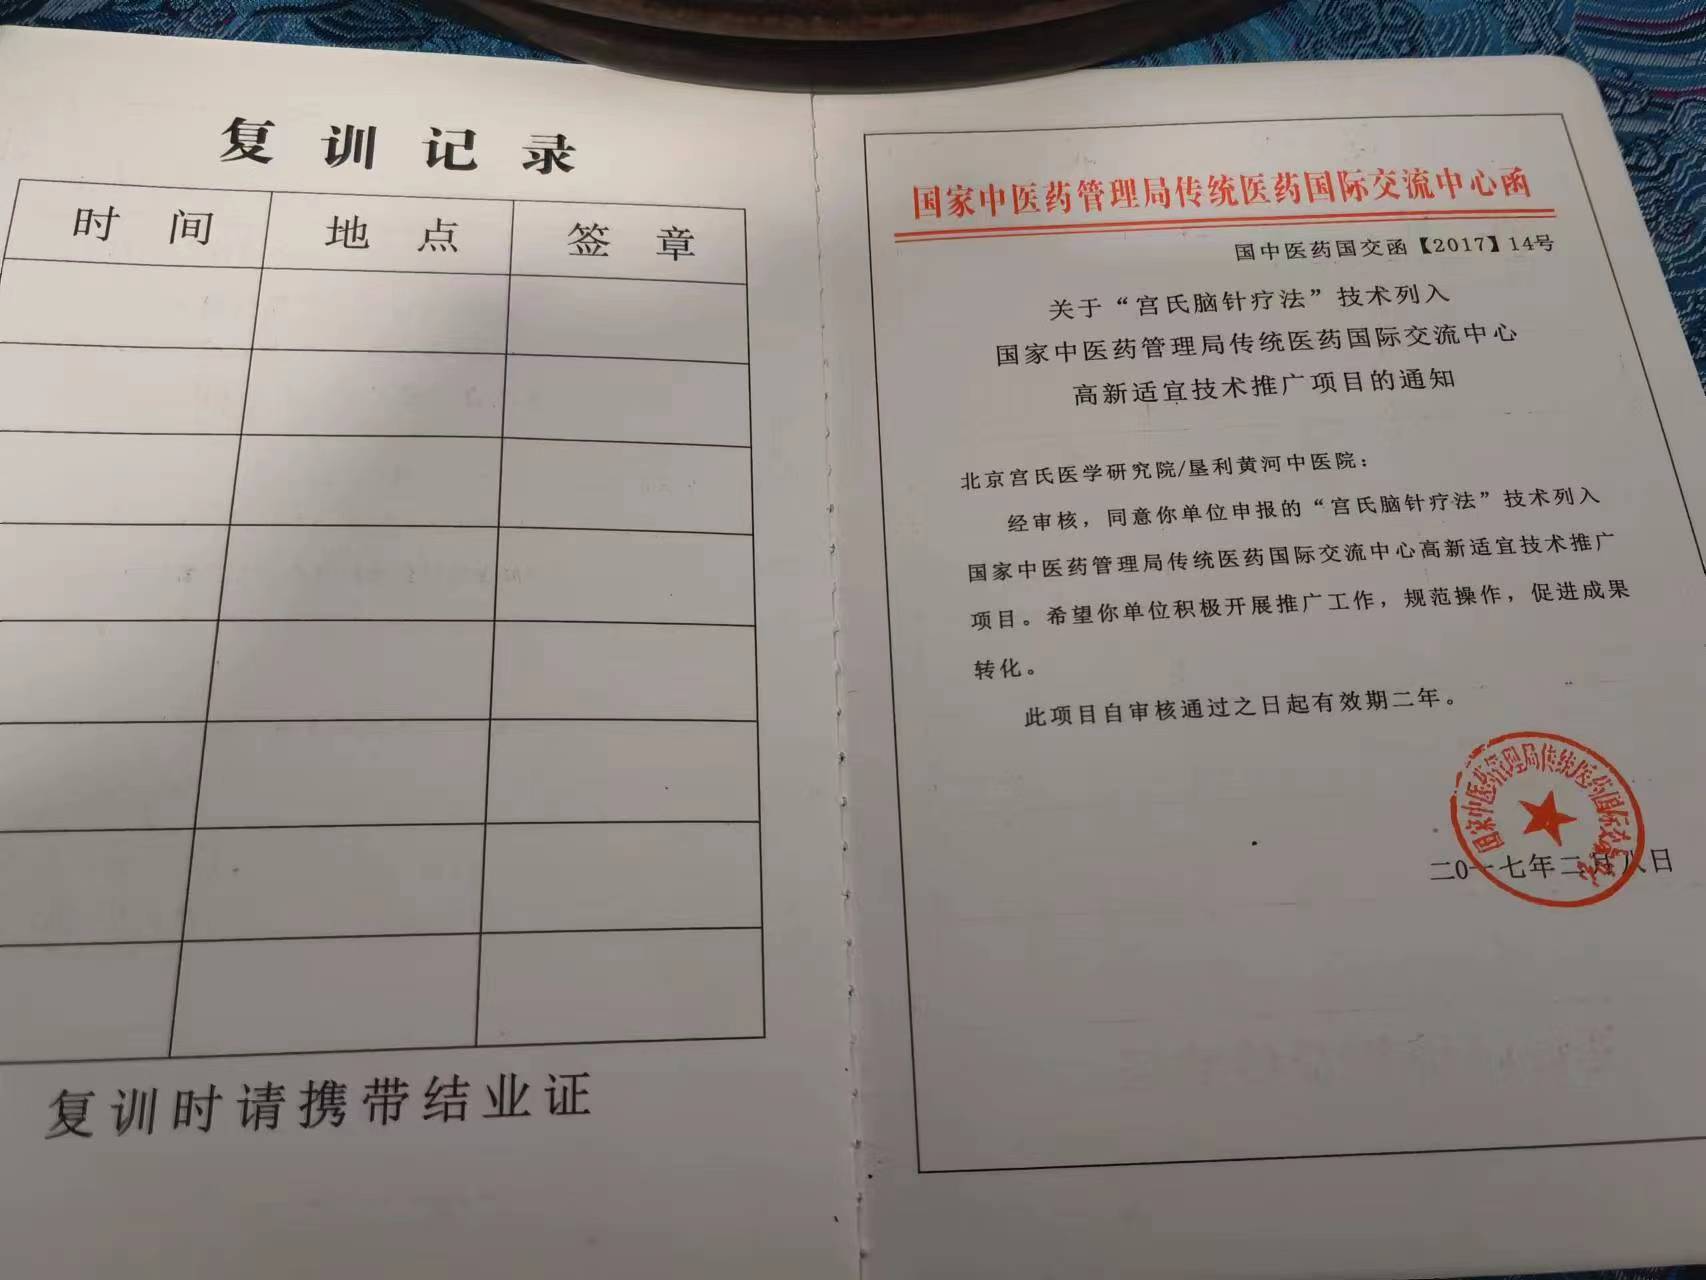 复训记录
时间 地点 签章
复训时请携带结业证
国家中医药管理局传统医药国际交流中心函
国中医药国交函【2017】14号
关于“宫氏脑针疗法”技术列入
国家中医药管理局传统医药国际交流中心
高新适宜技术推广项目的通知
北京宫氏医学研究院/垦利黄河中医院：
经审核，同意你单位申报的“宫氏脑针疗法”技术列入
国家中医药管理局传统医药国际交流中心高新适宜技术推广
项目。希望你单位积极开展推广工作，规范操作，促进成果
转化。
此项目自审核通过之日起有效期二年。
国家中医药管理局传统医药国际交流中心
二0一七年二月八日